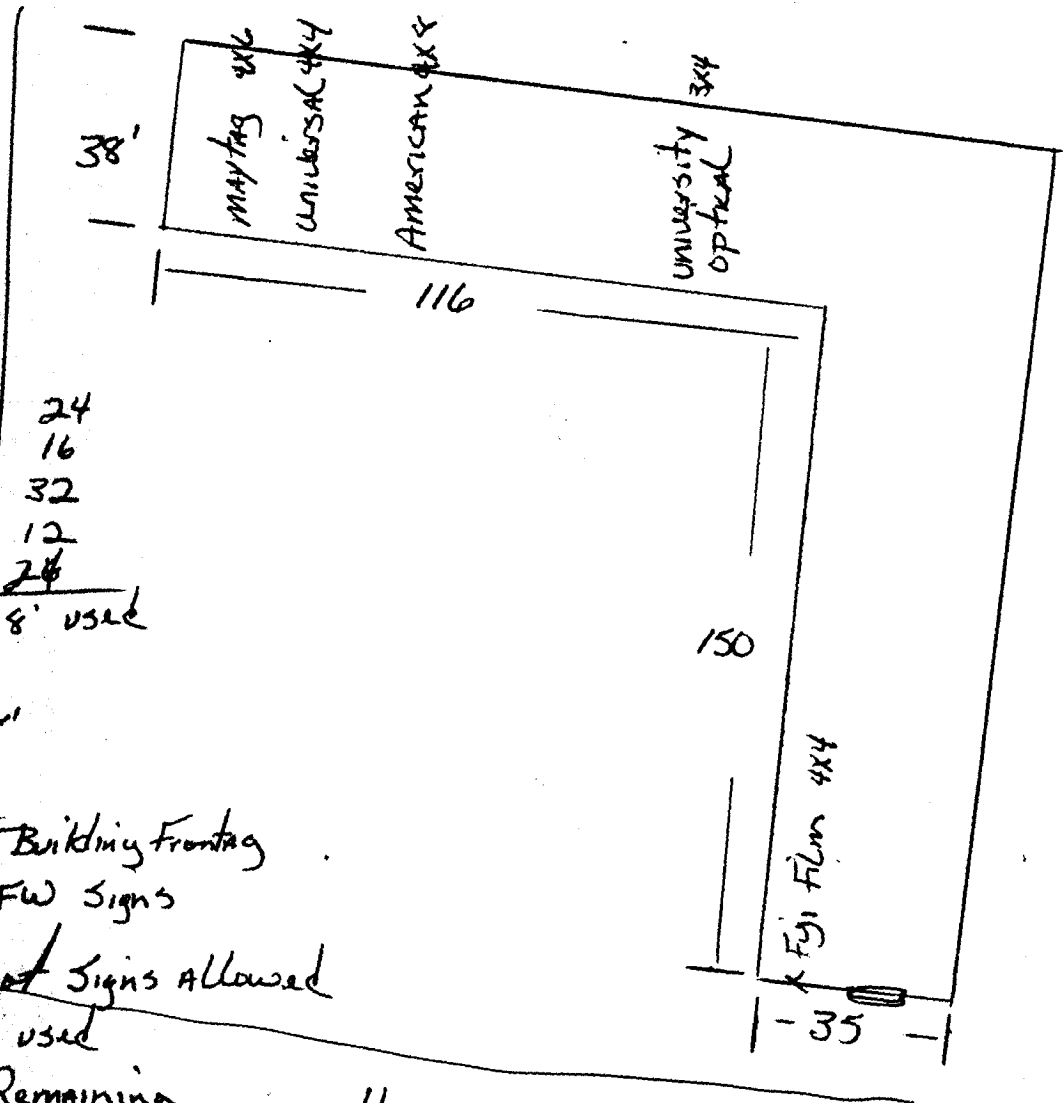 38'
MAYTAG 4X6
UNIVERSAL 4X4
AmericAN 4X8
university 3X4
OPTICAL
116
24
16
32
12
8' used
150
Fuji Film 4X4
Building Frontag
FW Signs
Signs Allowed
used
Remaining
- 35 -